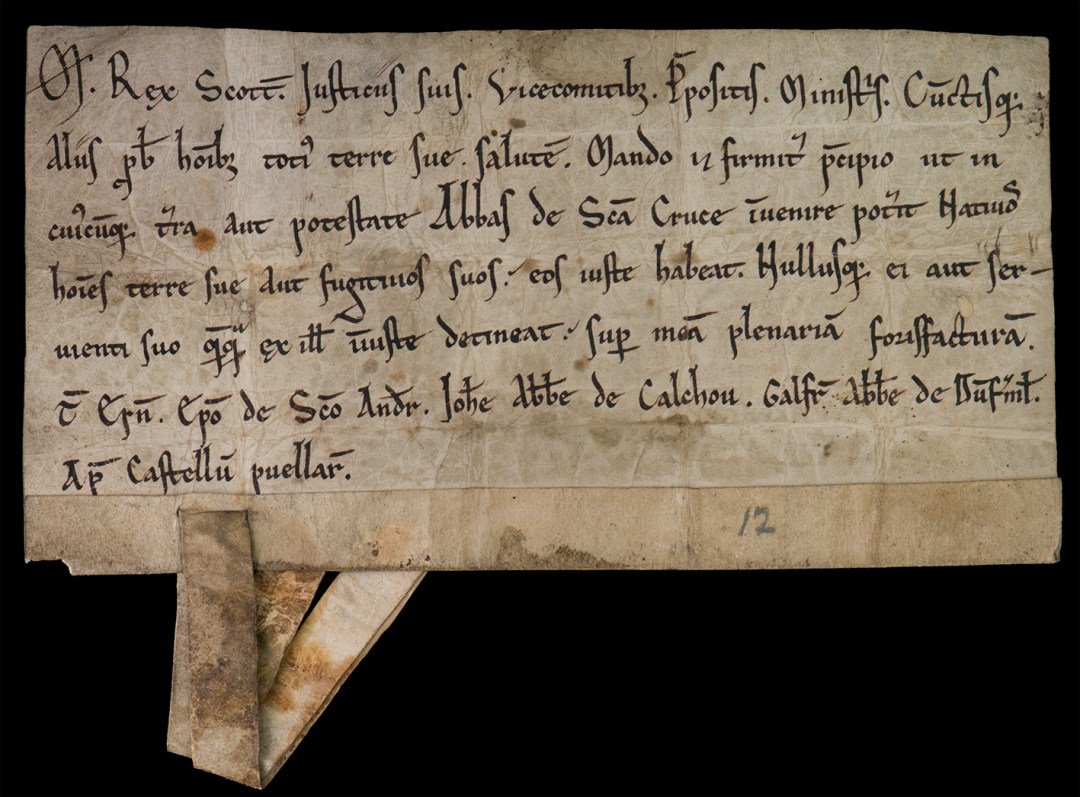 M̃. Rex Scott̃. Justiciis suis. vicecomitibꝫ. P̃positis. Ministr̃is. Cũctisqꝫ
Aliis ꝓb̃ hoĩbꝫ toti᷒ terre sue. salutẽ. Mando ⁊ firmit̃ p̃cipio ut in
cui᷒cũqꝫ t̃ra aut potestate Abbas de Scã Cruce ĩuenire pot̃it Natiuõ
hoĩes terre sue aut fugitiuos suos. eos iuste habeat. Nullusqꝫ ei aut ser-
uienti suo ex ill̃ ĩiuste detineat. suꝑ meã plenariã forisfacturã.
T̃ Ern̄. Ep̃o de Scõ Andr̃. Joh̃e Abb̃e de Calchou. Galfr̃ Abb̃e de Dũferml̃.
Ap̃ Castellũ puellar̃.
12